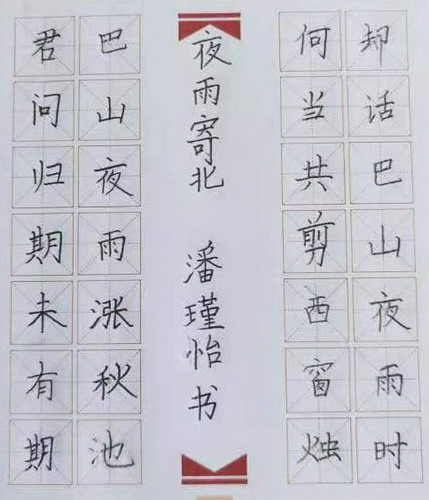 君问归期未有期
巴山夜雨涨秋池
夜雨寄北 潘瑾怡书
何当共剪西窗烛
却话巴山夜雨时